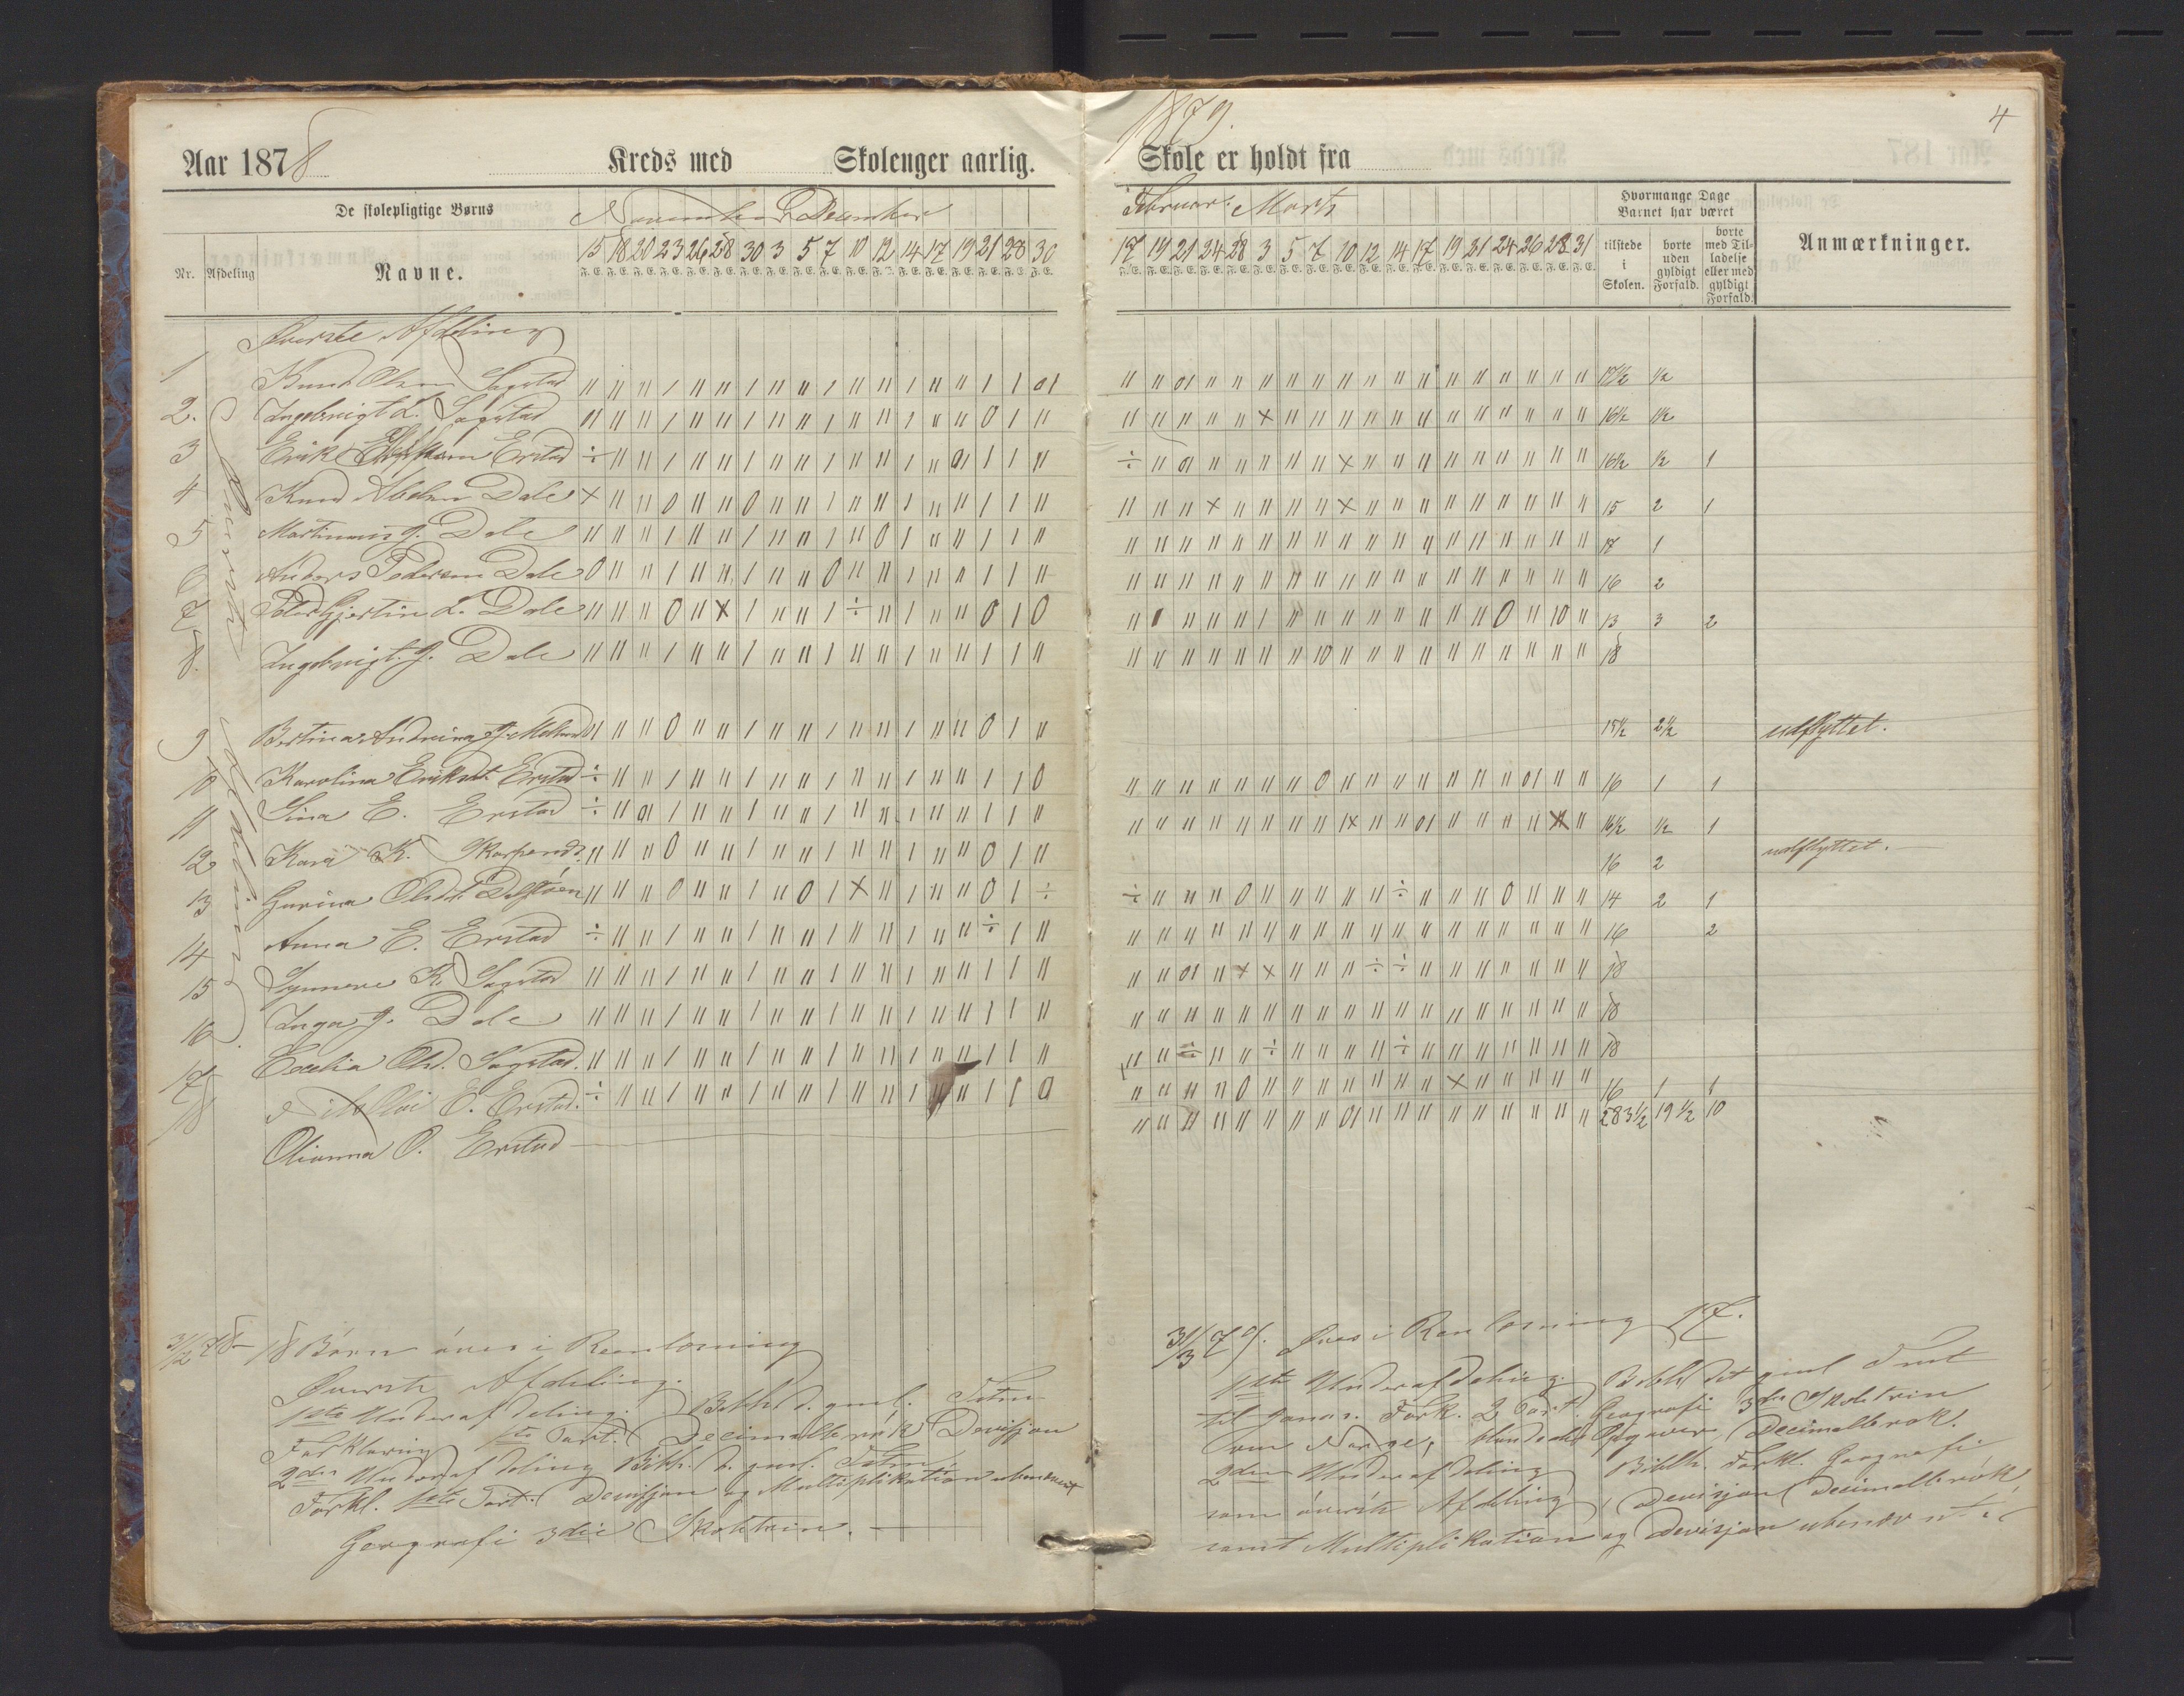 Aar 1878 Kreds med Skolenger aarlig.
De skolepligtige Børns
November December
Nr. Afdeling Navne.
15 18 20 23 26 28 30 3 5 7 10 12 14 17 19 21 28 30
Øverste Afdeling
1 Knud Olsen Sagstad
2. Ingebrigt L. Sagstad
3 Erik Erstad
4 Knud Dale
5 Martinus J. Dale
6 Anders Pedersen Dale
7 Peder Gjertin L. Dale
8. Ingebrigt. J. Dale
9 Bertina Andrina J.
10 Karolina Eriksdt. Erstad
11 Sina E. Erstad
12 Kari K.
13 Gurina Olsdt.
14 Anna E. Erstad
15 Synneve K. Sagstad
16 Inga J. Dale
17 Ecelia Olsd. Sagstad.
18 Nikolai E. Erstad.
Olianna O. Erstad
31/12 78 18 Børn øves i Renlæsning
Øverste Afdeling.
1ste Underafdeling. Bibhl. d. gml. Testm.
Forklaring 1ste Part. Decimalbrøk Devisjon
2den Underafdeling Bibh. d. gml. Testm.
Forkl. 1ste Part. Devisjon og Multiplikation ubenævnt
Geografi 3die Skoletrin.
1879.
4
Skole er holdt fra
Februar. Marts
17 19 21 24 28 3 5 7 10 12 14 17 19 21 24 26 28 31
Hvormange Dage
Barnet har været
tilstede i Skolen.
borte uden gyldigt Forfald.
borte med Tilladelse eller med gyldigt Forfald.
Anmærkninger.
17½ ½
16½ 1½
16½ ½ 1
15 2 1
17 1
16 2
13 3 2
18
15½ 2½ udflyttet.
16 1 1
16½ ½ 1
16 2 udflyttet.
14 2 1
16 2
18
18
18
16 1 1
283½ 19½ 10
31/3 79. Øves i Renlæsning 17.
1ste Underafdeling. Bibhl. det gml. Testm
til Forkl. 2 Part. Geografi 3die Skoletrin
om Norge, blandede Opgaver Decimalbrøk.
2den Underafdeling Biblh. Forkl. Geografi
som øverste Afdeling, Devisjon Decimalbrøk,
samt Multiplikation og Devisjon ubenævnte